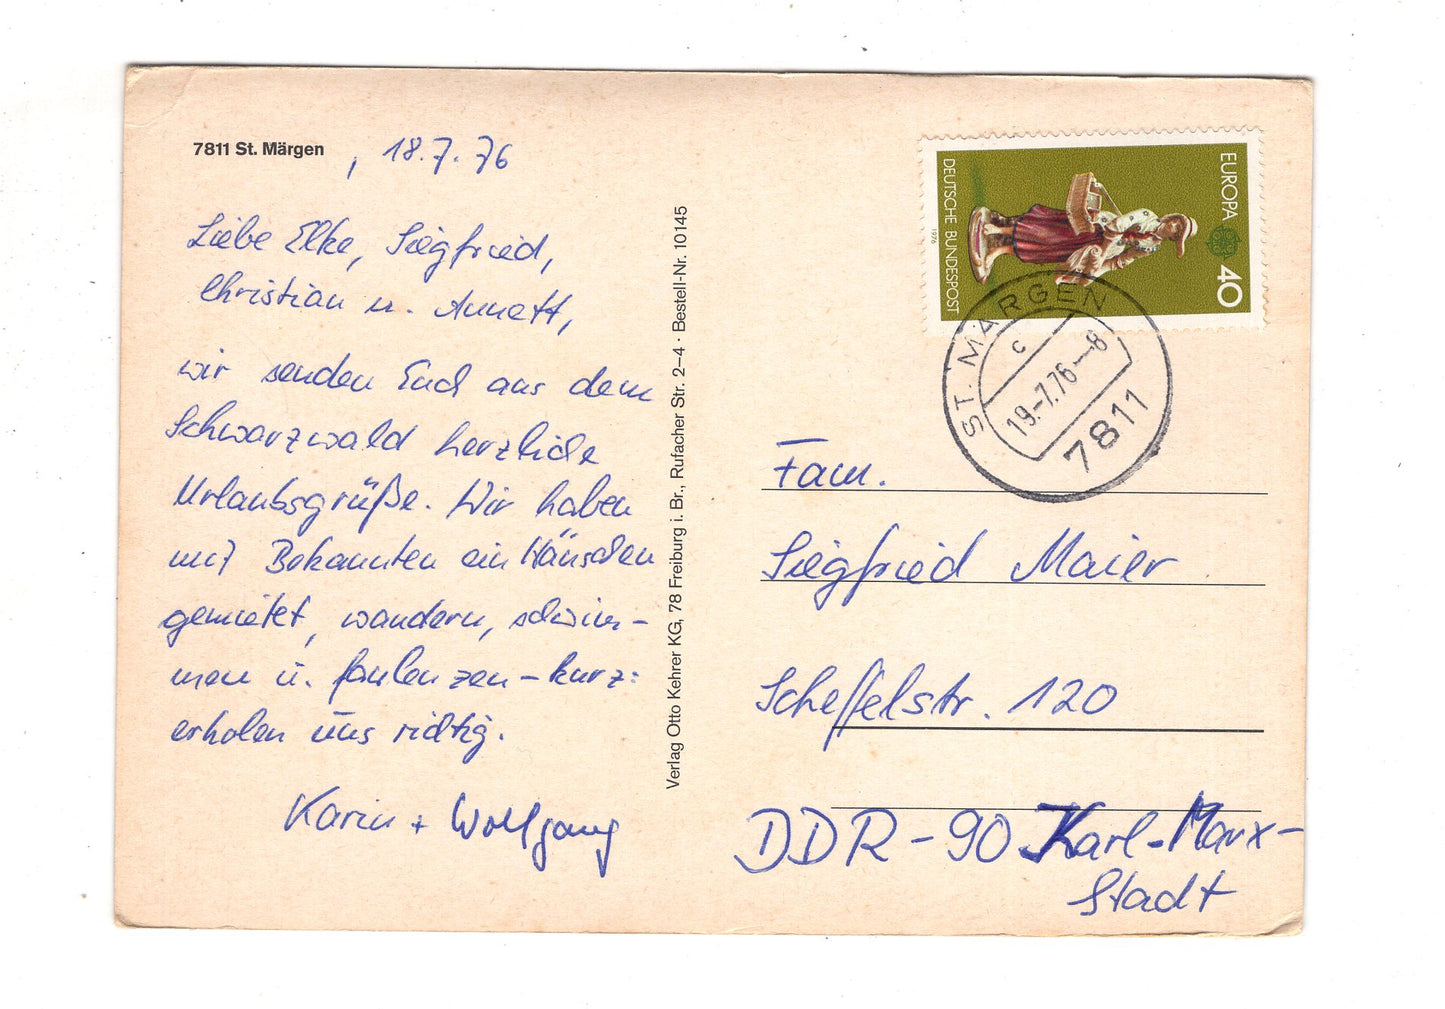 7811 St. Märgen , 18.7.76
Liebe Elke, Siegfried,
Christian u. Annett,
wir senden Euch aus dem
Schwarzwald herzliche
Urlaubsgrüße. Wir haben
mit Bekannten ein Häuschen
gemietet, wandern, schwim-
men u. faulenzen – kurz:
erholen uns richtig.
Karin + Wolfgang
Verlag Otto Kehrer KG, 78 Freiburg i. Br., Rufacher Str. 2–4 · Bestell-Nr. 10145
EUROPA 40
DEUTSCHE BUNDESPOST
1976
ST. MÄRGEN
c
19.-7.76-8
7811
Fam.
Siegfried Maier
Scheffelstr. 120
DDR - 90 Karl-Marx-
Stadt